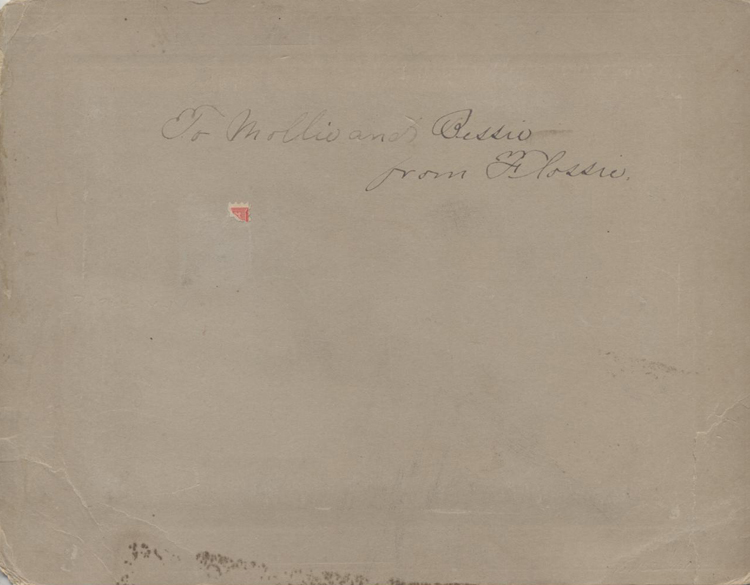 To Mollie and Bessie
from Flossie.